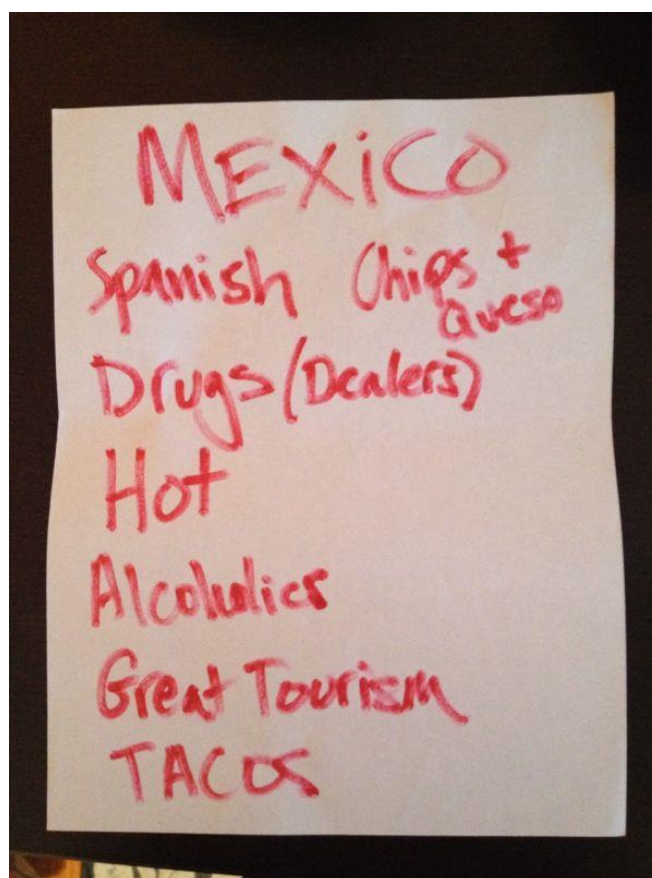 MEXiCO
Spanish Chips +
Queso
Drugs (Dealers)
Hot
Alcoholics
Great Tourism
TACOS